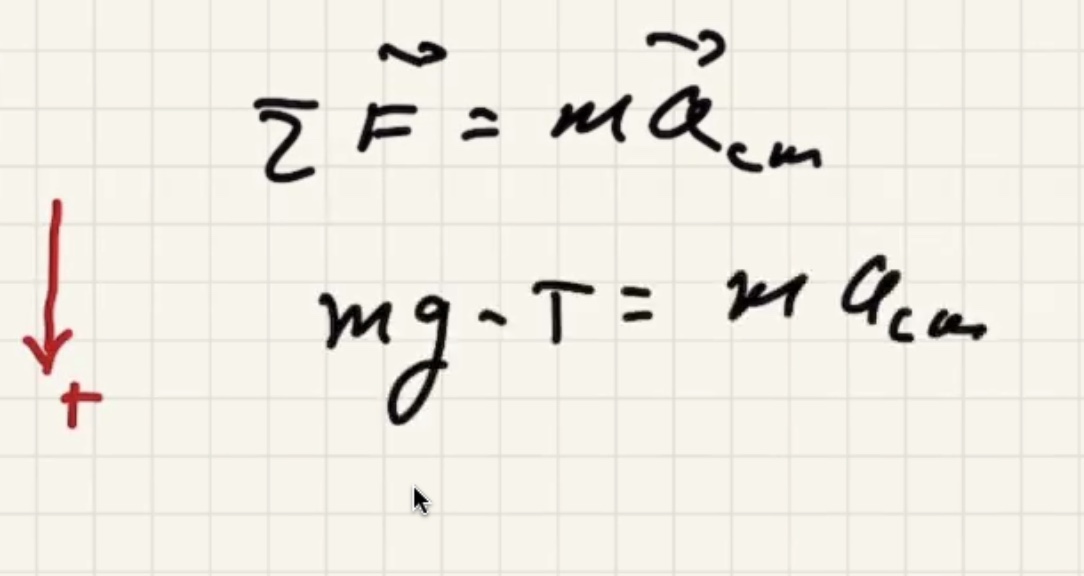 Σ F⃗ = m a⃗cm
mg - T = m acm
+